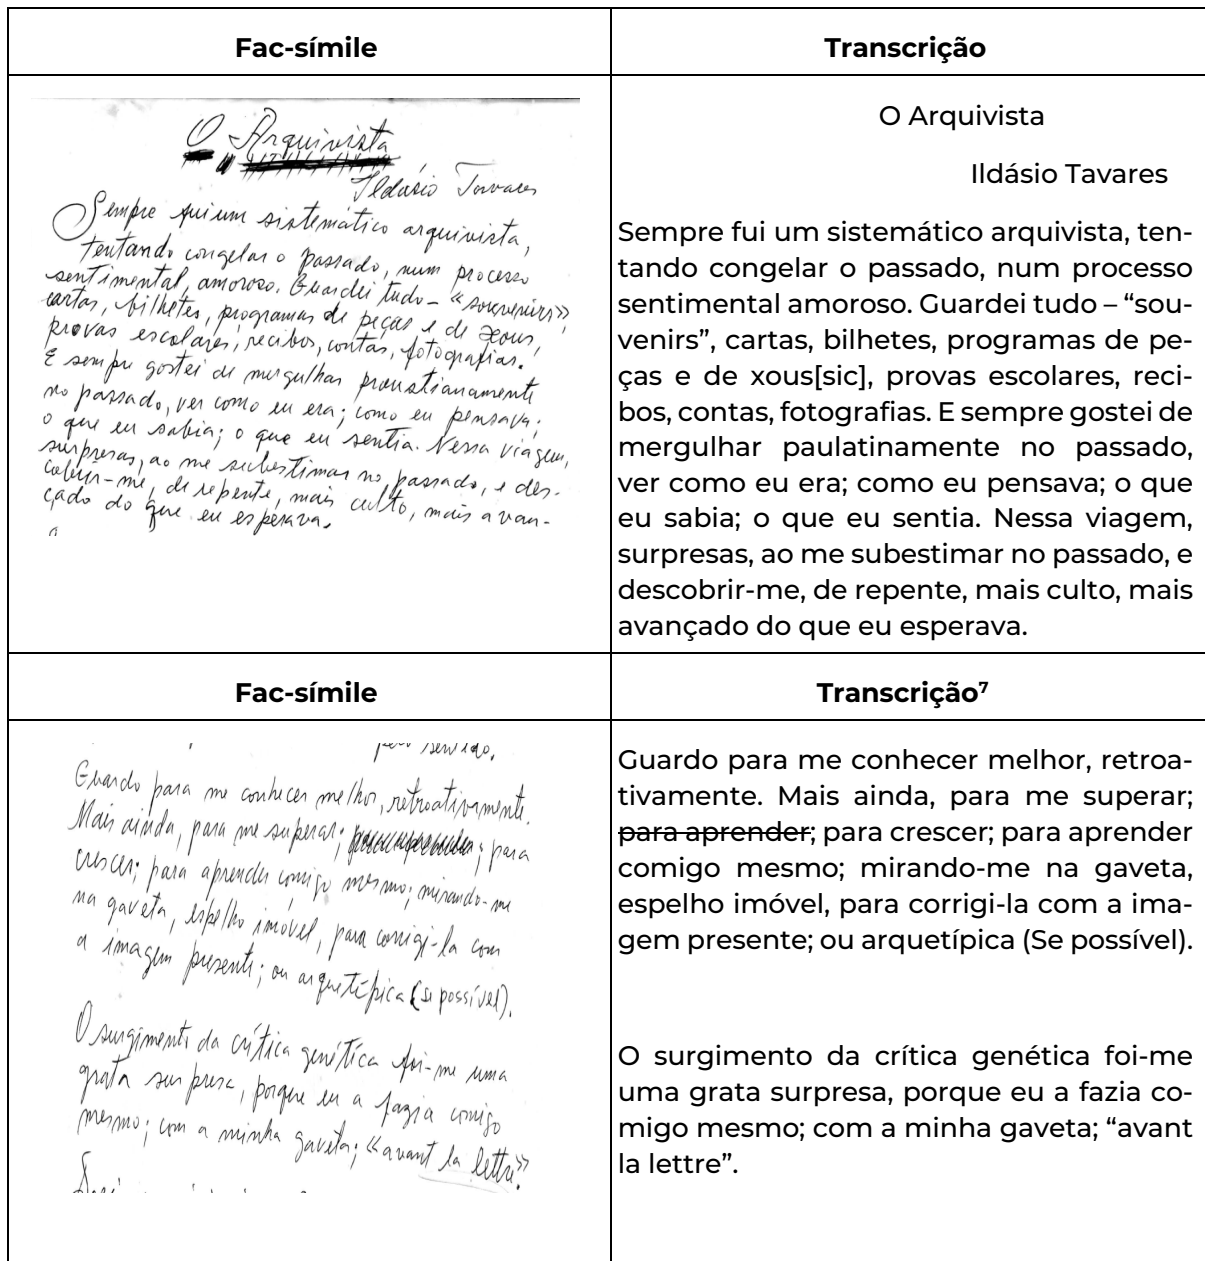 Fac-símile
Transcrição
O Arquivista
Ildásio Tavares
Sempre fui um sistemático arquivista,
tentando congelar o passado, num processo
sentimental, amoroso. Guardei tudo – «souvenirs»,
cartas, bilhetes, programas de peças e de xous,
provas escolares, recibos, contas, fotografias.
E sempre gostei de mergulhar proustianamente
no passado, ver como eu era; como eu pensava;
o que eu sabia; o que eu sentia. Nessa viagem,
surpresas, ao me subestimar no passado, e des-
cobrir-me, de repente, mais culto, mais avan-
çado do que eu esperava.
O Arquivista
Ildásio Tavares
Sempre fui um sistemático arquivista, ten-
tando congelar o passado, num processo
sentimental amoroso. Guardei tudo – “sou-
venirs”, cartas, bilhetes, programas de pe-
ças e de xous[sic], provas escolares, reci-
bos, contas, fotografias. E sempre gostei de
mergulhar paulatinamente no passado,
ver como eu era; como eu pensava; o que
eu sabia; o que eu sentia. Nessa viagem,
surpresas, ao me subestimar no passado, e
descobrir-me, de repente, mais culto, mais
avançado do que eu esperava.
Fac-símile
Transcrição⁷
Guardo para me conhecer melhor, retroativamente.
Mais ainda, para me superar; para aprender; para
crescer; para aprender comigo mesmo; mirando-me
na gaveta, espelho imóvel, para corrigi-la com
a imagem presente; ou arquetípica (se possível).
O surgimento da crítica genética foi-me uma
grata surpresa, porque eu a fazia comigo
mesmo; com a minha gaveta; «avant la lettre».
Guardo para me conhecer melhor, retroa-
tivamente. Mais ainda, para me superar;
para aprender; para crescer; para aprender
comigo mesmo; mirando-me na gaveta,
espelho imóvel, para corrigi-la com a ima-
gem presente; ou arquetípica (Se possível).
O surgimento da crítica genética foi-me
uma grata surpresa, porque eu a fazia co-
migo mesmo; com a minha gaveta; “avant
la lettre”.